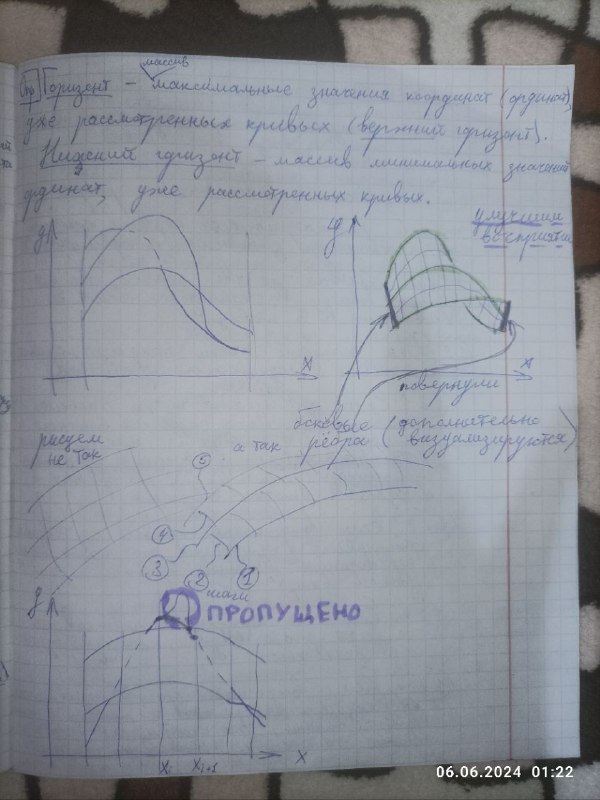 Опр Горизонт – массив максимальные значения координат (ординат),
уже рассмотренных кривых (верхний горизонт).
Нижний горизонт – массив минимальных значений
ординат, уже рассмотренных кривых.
y
x
y
улучшим
восприятие
x
повернули
боковые (дополнительно
рёбра визуализируются)
рисуем
не так
а так
5
4
3
2
1
шаги
ПРОПУЩЕНО
y
xi
xi+1
x
06.06.2024 01:22